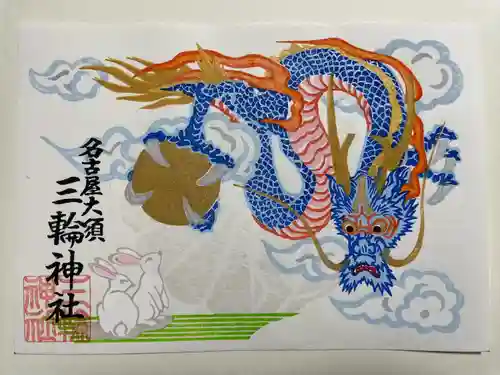 名古屋大須
三輪神社